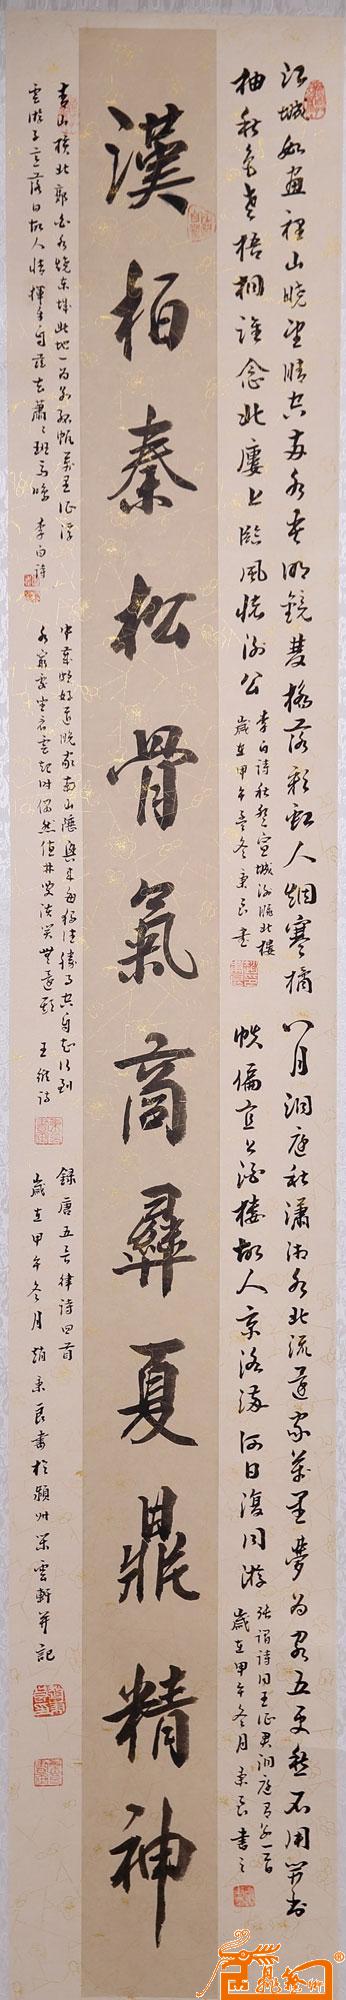 江城如畫裡山曉望晴空兩水夾明鏡雙橋落彩虹人烟寒橘
柚秋色老梧桐誰念北樓上臨風懷謝公
李白詩秋登宣城謝朓北樓
歲在甲午冬秉良書
八月洞庭秋瀟湘水北流還家萬里夢為客五更愁不用開書
帙偏宜上酒樓故人京洛滿何日復同游
張謂詩同王徵君洞庭有懷一首
歲在甲午冬月秉良書之
漢柏秦松骨氣商彝夏鼎精神
青山橫北郭白水繞東城此地一為別孤帆萬里征浮
雲游子意落日故人情揮手自茲去蕭々班馬鳴 李白詩
中歲頗好道晚家南山陲興來每獨往勝事空自知行到
水窮處坐看雲起時偶然值林叟談笑無還期 王維詩
錄唐五言律詩四首
歲在甲午冬月趙秉良書於潁州 雲軒并記